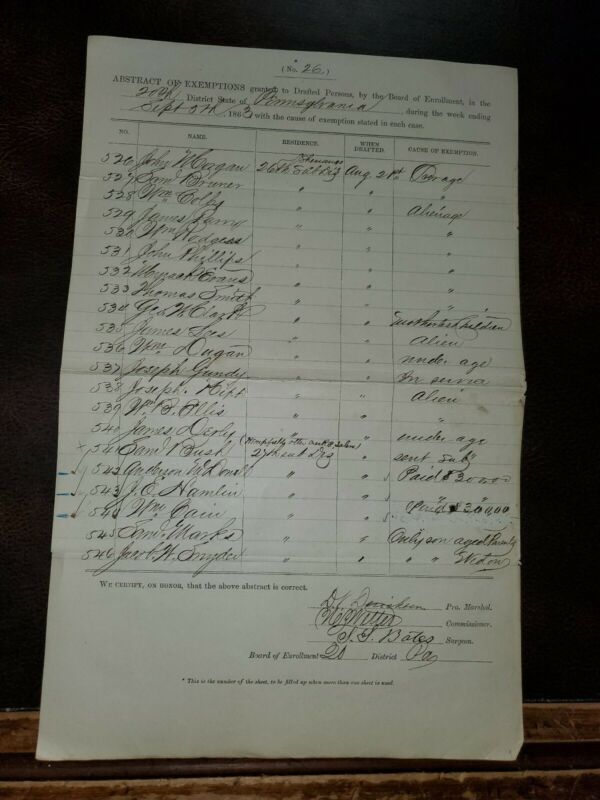 (No. 26.)
ABSTRACT OF EXEMPTIONS granted to Drafted Persons, by the Board of Enrollment, in the
20th District State of Pennsylvania during the week ending
Sept 5th 1863 with the cause of exemption stated in each case.
NO. NAME. RESIDENCE. WHEN DRAFTED. CAUSE OF EXEMPTION.
526 John Hagan 26th Sub Dis Aug. 21st Overage
527 Saml Bruner " " "
528 Wm Coby " " Alienage
529 James Parry " " "
530 Wm Hodgess " " "
531 John Phillips " " "
532 Evans " " "
533 Thomas Smith " " "
534 Geo W. Clark " " Motherless Children
535 James " " Alien
536 Wm Dugan " " under age
537 Joseph Gundy " " In service
538 Joseph " " Alien
539 Wm B. Ellis " " "
540 James Derby " " under age
541 Saml Bush 27th sub Dis " sent Sub
542 Anderson McDonal " " Paid $300.00
543 J. E. Hamlin " " " "
544 Wm Cain " " Paid $300.00
545 Saml Marks " " Only son aged Parents
546 Jacob W. Snyder " " " " Widow
WE CERTIFY, ON HONOR, that the above abstract is correct.
Pro. Marshal.
Commissioner.
S. S. Bates Surgeon.
Board of Enrollment 20 District Pa
* This is the number of the sheet, to be filled up when more than one sheet is used.